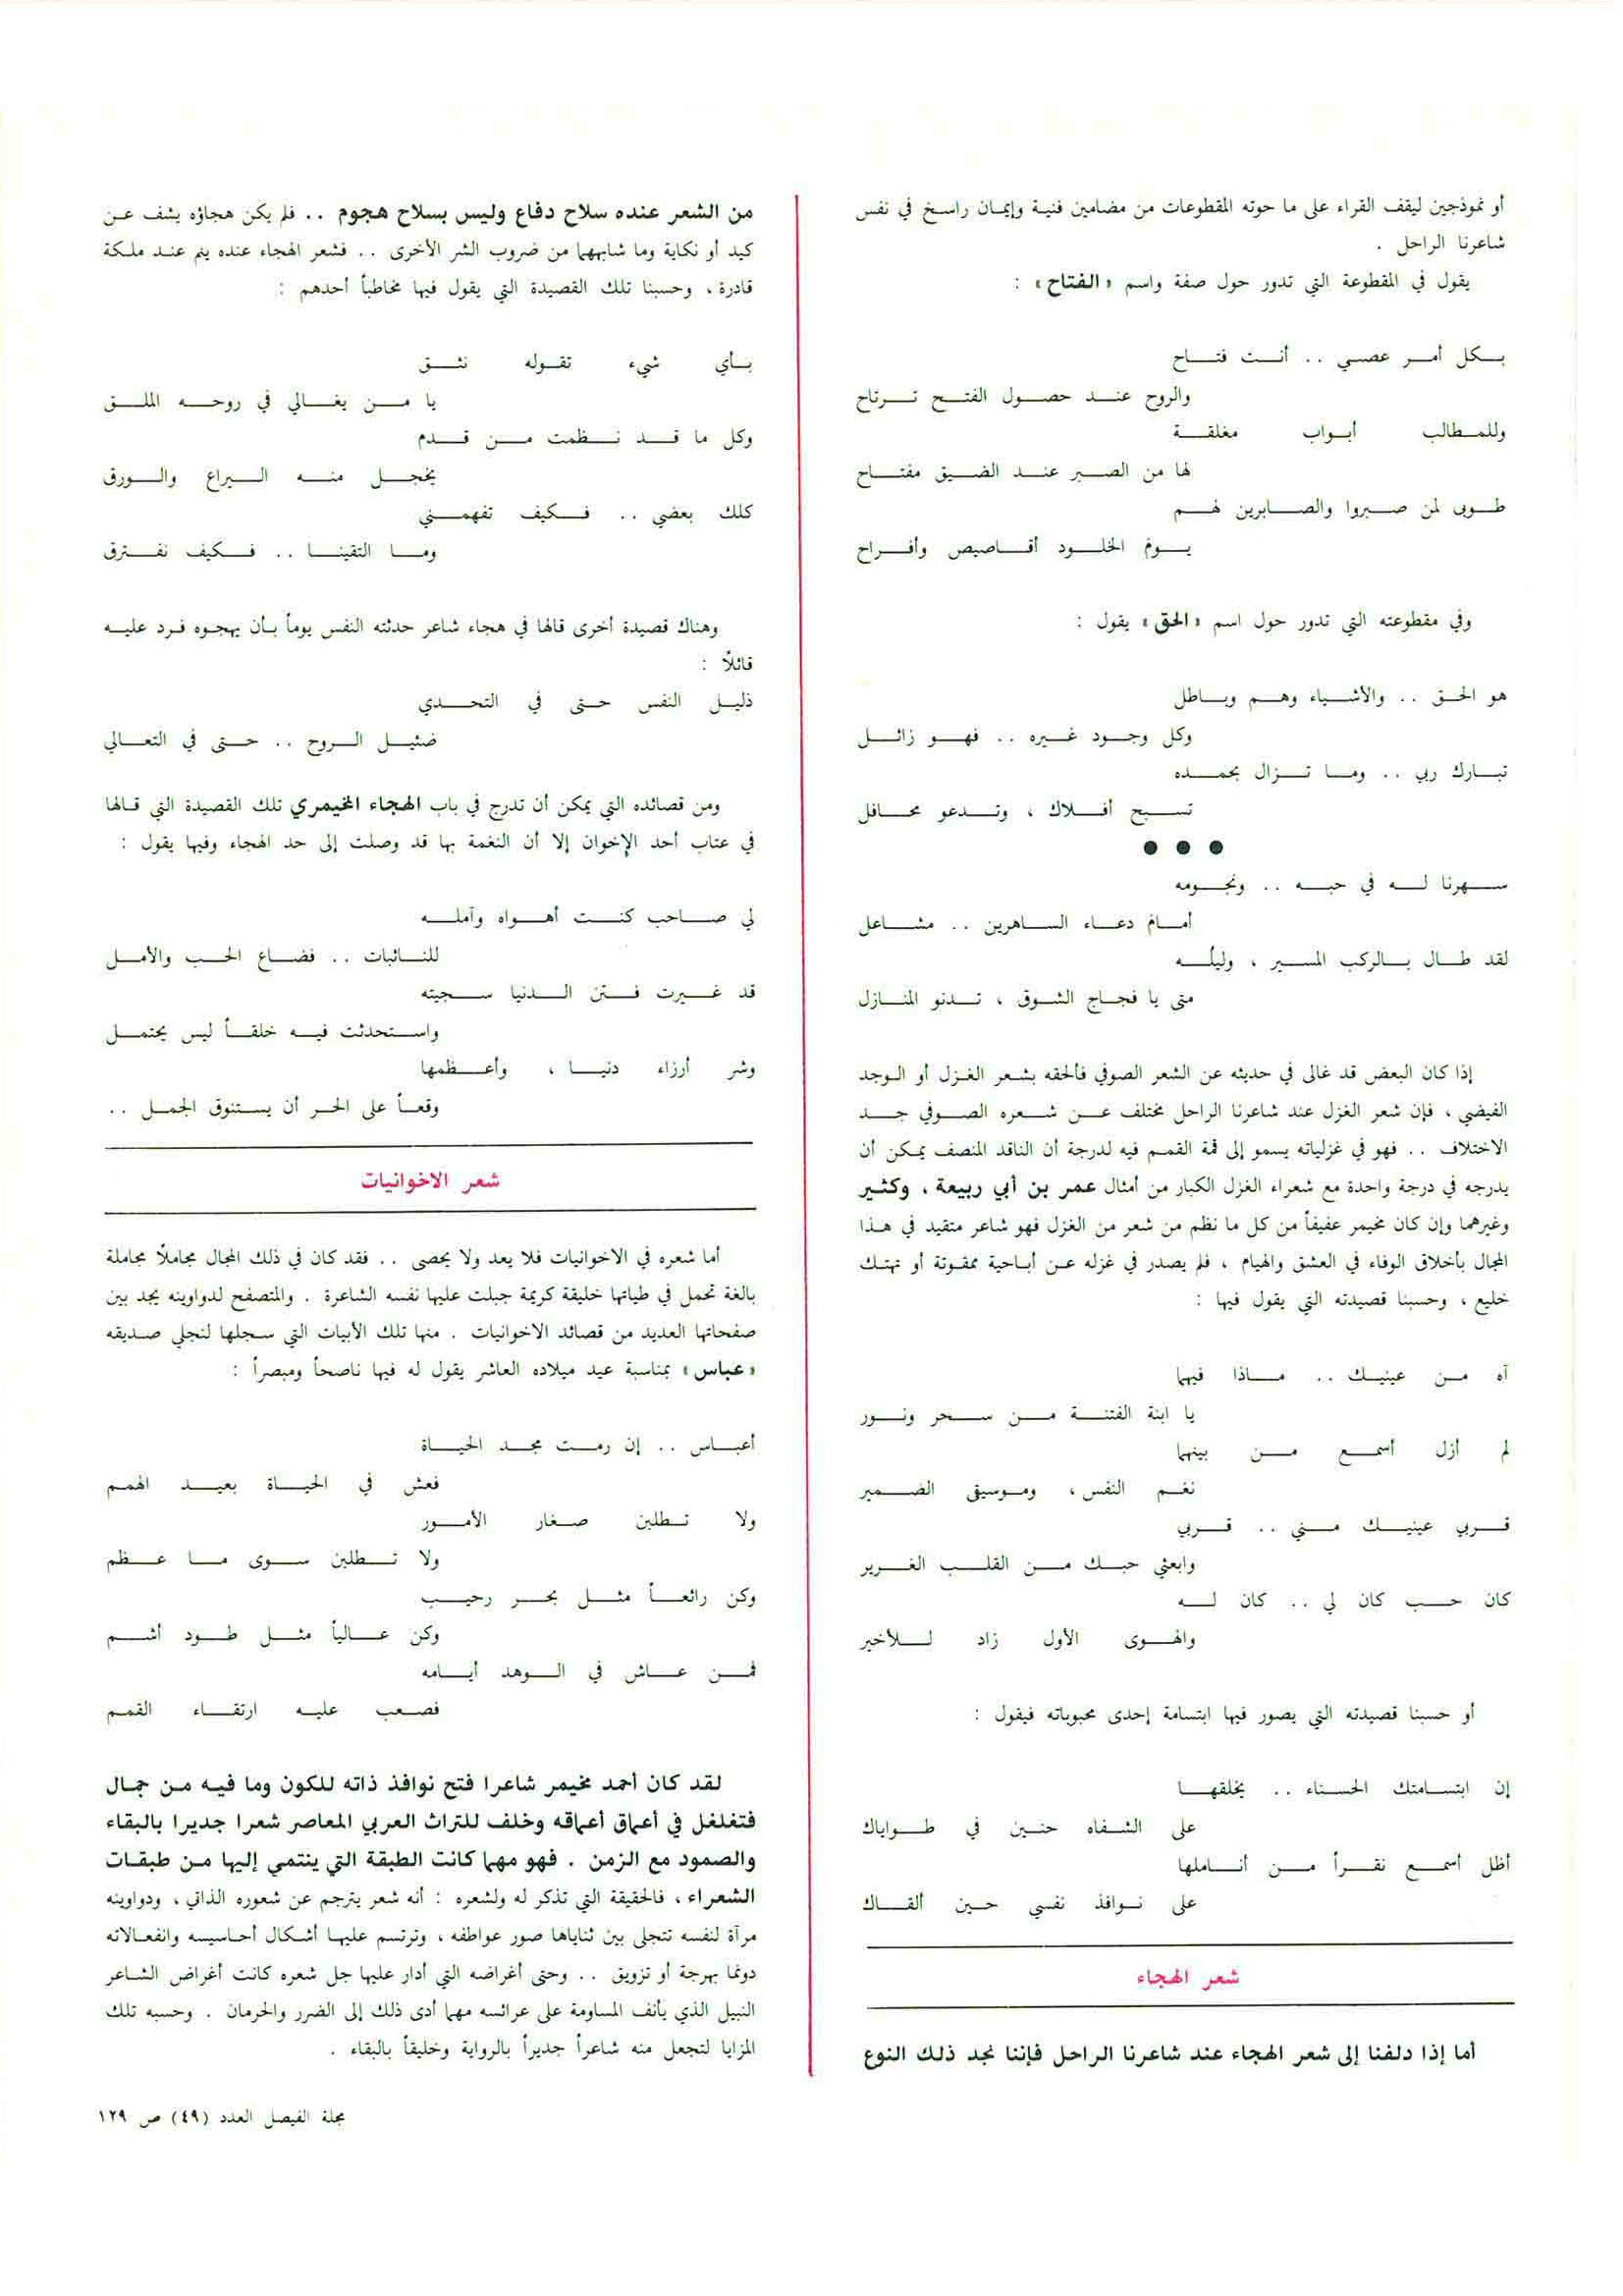 أو نموذجين ليقف القراء على ما حوته المقطوعات من مضامين فنية وإيمان راسخ في نفس
شاعرنا الراحل .
يقول في المقطوعة التي تدور حول صفة واسم «الفتاح» :
بكل أمر عصي .. أنت فتاح
والروح عند حصول الفتح ترتاح
وللمطالب أبواب مغلقة
لها من الصبر عند الضيق مفتاح
طوبى لمن صبروا والصابرين لهم
يوم الخلود أقاصيص وأفراح
وفي مقطوعته التي تدور حول اسم «الحق» يقول :
هو الحق .. والأشياء وهم وباطل
وكل وجود غيره .. فهو زائل
تبارك ربي .. وما تزال بحمده
تسبح أفلاك ، وتدعو محافل
● ● ●
سهرنا له في حبه .. ونجومه
أمام دعاء الساهرين .. مشاعل
لقد طال بالركب المسير ، وليلُه
متى يا فجاج الشوق ، تدنو المنازل
إذا كان البعض قد غالى في حديثه عن الشعر الصوفي فألحقه بشعر الغزل أو الوجد
الفيضي ، فإن شعر الغزل عند شاعرنا الراحل مختلف عن شعره الصوفي جد
الاختلاف .. فهو في غزلياته يسمو إلى قمة القمم فيه لدرجة أن الناقد المنصف يمكن أن
يدرجه في درجة واحدة مع شعراء الغزل الكبار من أمثال عمر بن أبي ربيعة ، وكثير
وغيرهما وإن كان مخيمر عفيفاً من كل ما نظم من شعر من الغزل فهو شاعر متقيد في هذا
المجال بأخلاق الوفاء في العشق والهيام ، فلم يصدر في غزله عن أباحية ممقوتة أو تهتك
خليع ، وحسبنا قصيدته التي يقول فيها :
آه من عينيك .. ماذا فيهما
يا ابنة الفتنة من سحر ونور
لم أزل أسمع من بينهما
نغم النفس ، وموسيقى الضمير
قربي عينيك مني .. قربي
وابعثي حبك من القلب الغرير
كان حب كان لي .. كان له
والهوى الأول زاد للأخير
أو حسبنا قصيدته التي يصور فيها ابتسامة إحدى محبوباته فيقول :
إن ابتسامتك الحسناء .. يخلقها
على الشفاه حنين في طواياك
أظل أسمع نقراً من أناملها
على نوافذ نفسي حين ألقاك
شعر الهجاء
أما إذا دلفنا إلى شعر الهجاء عند شاعرنا الراحل فإننا نجد ذلك النوع
من الشعر عنده سلاح دفاع وليس بسلاح هجوم .. فلم يكن هجاؤه يشف عن
كيد أو نكاية وما شابههما من ضروب الشر الأخرى .. فشعر الهجاء عنده ينم عند ملكة
قادرة ، وحسبنا تلك القصيدة التي يقول فيها مخاطباً أحدهم :
بأي شيء تقوله نثق
يا من يغالي في روحه الملق
وكل ما قد نظمت من قدم
يخجل منه اليراع والورق
كلك بعضي .. فكيف تفهمني
وما التقينا .. فكيف نفترق
وهناك قصيدة أخرى قالها في هجاء شاعر حدثته النفس يوماً بأن يهجوه فرد عليه
قائلاً :
ذليل النفس حتى في التحدي
ضئيل الروح .. حتى في التعالي
ومن قصائده التي يمكن أن تدرج في باب الهجاء المخيمري تلك القصيدة التي قالها
في عتاب أحد الإخوان إلا أن النغمة بها قد وصلت إلى حد الهجاء وفيها يقول :
لي صاحب كنت أهواه وآمله
للنائبات .. فضاع الحب والأمل
قد غيرت فتن الدنيا سجيته
واستحدثت فيه خلقاً ليس يحتمل
وشر أرزاء دنيا ، وأعظمها
وقعاً على الحر أن يستنوق الجمل ..
شعر الاخوانيات
أما شعره في الاخوانيات فلا يعد ولا يحصى .. فقد كان في ذلك المجال مجاملاً مجاملة
بالغة تحمل في طياتها خليقة كريمة جبلت عليها نفسه الشاعرة . والمتصفح لدواوينه يجد بين
صفحاتها العديد من قصائد الاخوانيات . منها تلك الأبيات التي سجلها لنجلي صديقه
«عباس» بمناسبة عيد ميلاده العاشر يقول له فيها ناصحاً ومبصراً :
أعباس .. إن رمت مجد الحياة
فعش في الحياة بعيد الهمم
ولا تطلبن صغار الأمور
ولا تطلبن سوى ما عظم
وكن رائعاً مثل بحر رحيب
وكن عالياً مثل طود أشم
فمن عاش في الوهد أيامه
فصعب عليه ارتقاء القمم
لقد كان أحمد مخيمر شاعرا فتح نوافذ ذاته للكون وما فيه من جمال
فتغلغل في أعماق أعماقه وخلف للتراث العربي المعاصر شعرا جديرا بالبقاء
والصمود مع الزمن . فهو مهما كانت الطبقة التي ينتمي إليها من طبقات
الشعراء ، فالحقيقة التي تذكر له ولشعره : أنه شعر يترجم عن شعوره الذاتي ، ودواوينه
مرآة لنفسه تتجلى بين ثناياها صور عواطفه ، وترتسم عليها أشكال أحاسيسه وانفعالاته
دونما بهرجة أو تزويق .. وحتى أغراضه التي أدار عليها جل شعره كانت أغراض الشاعر
النبيل الذي يأنف المساومة على عرائسه مهما أدى ذلك إلى الضرر والحرمان . وحسبه تلك
المزايا لتجعل منه شاعراً جديراً بالرواية وخليقاً بالبقاء .
مجلة الفيصل العدد (٤٩) ص ١٢٩